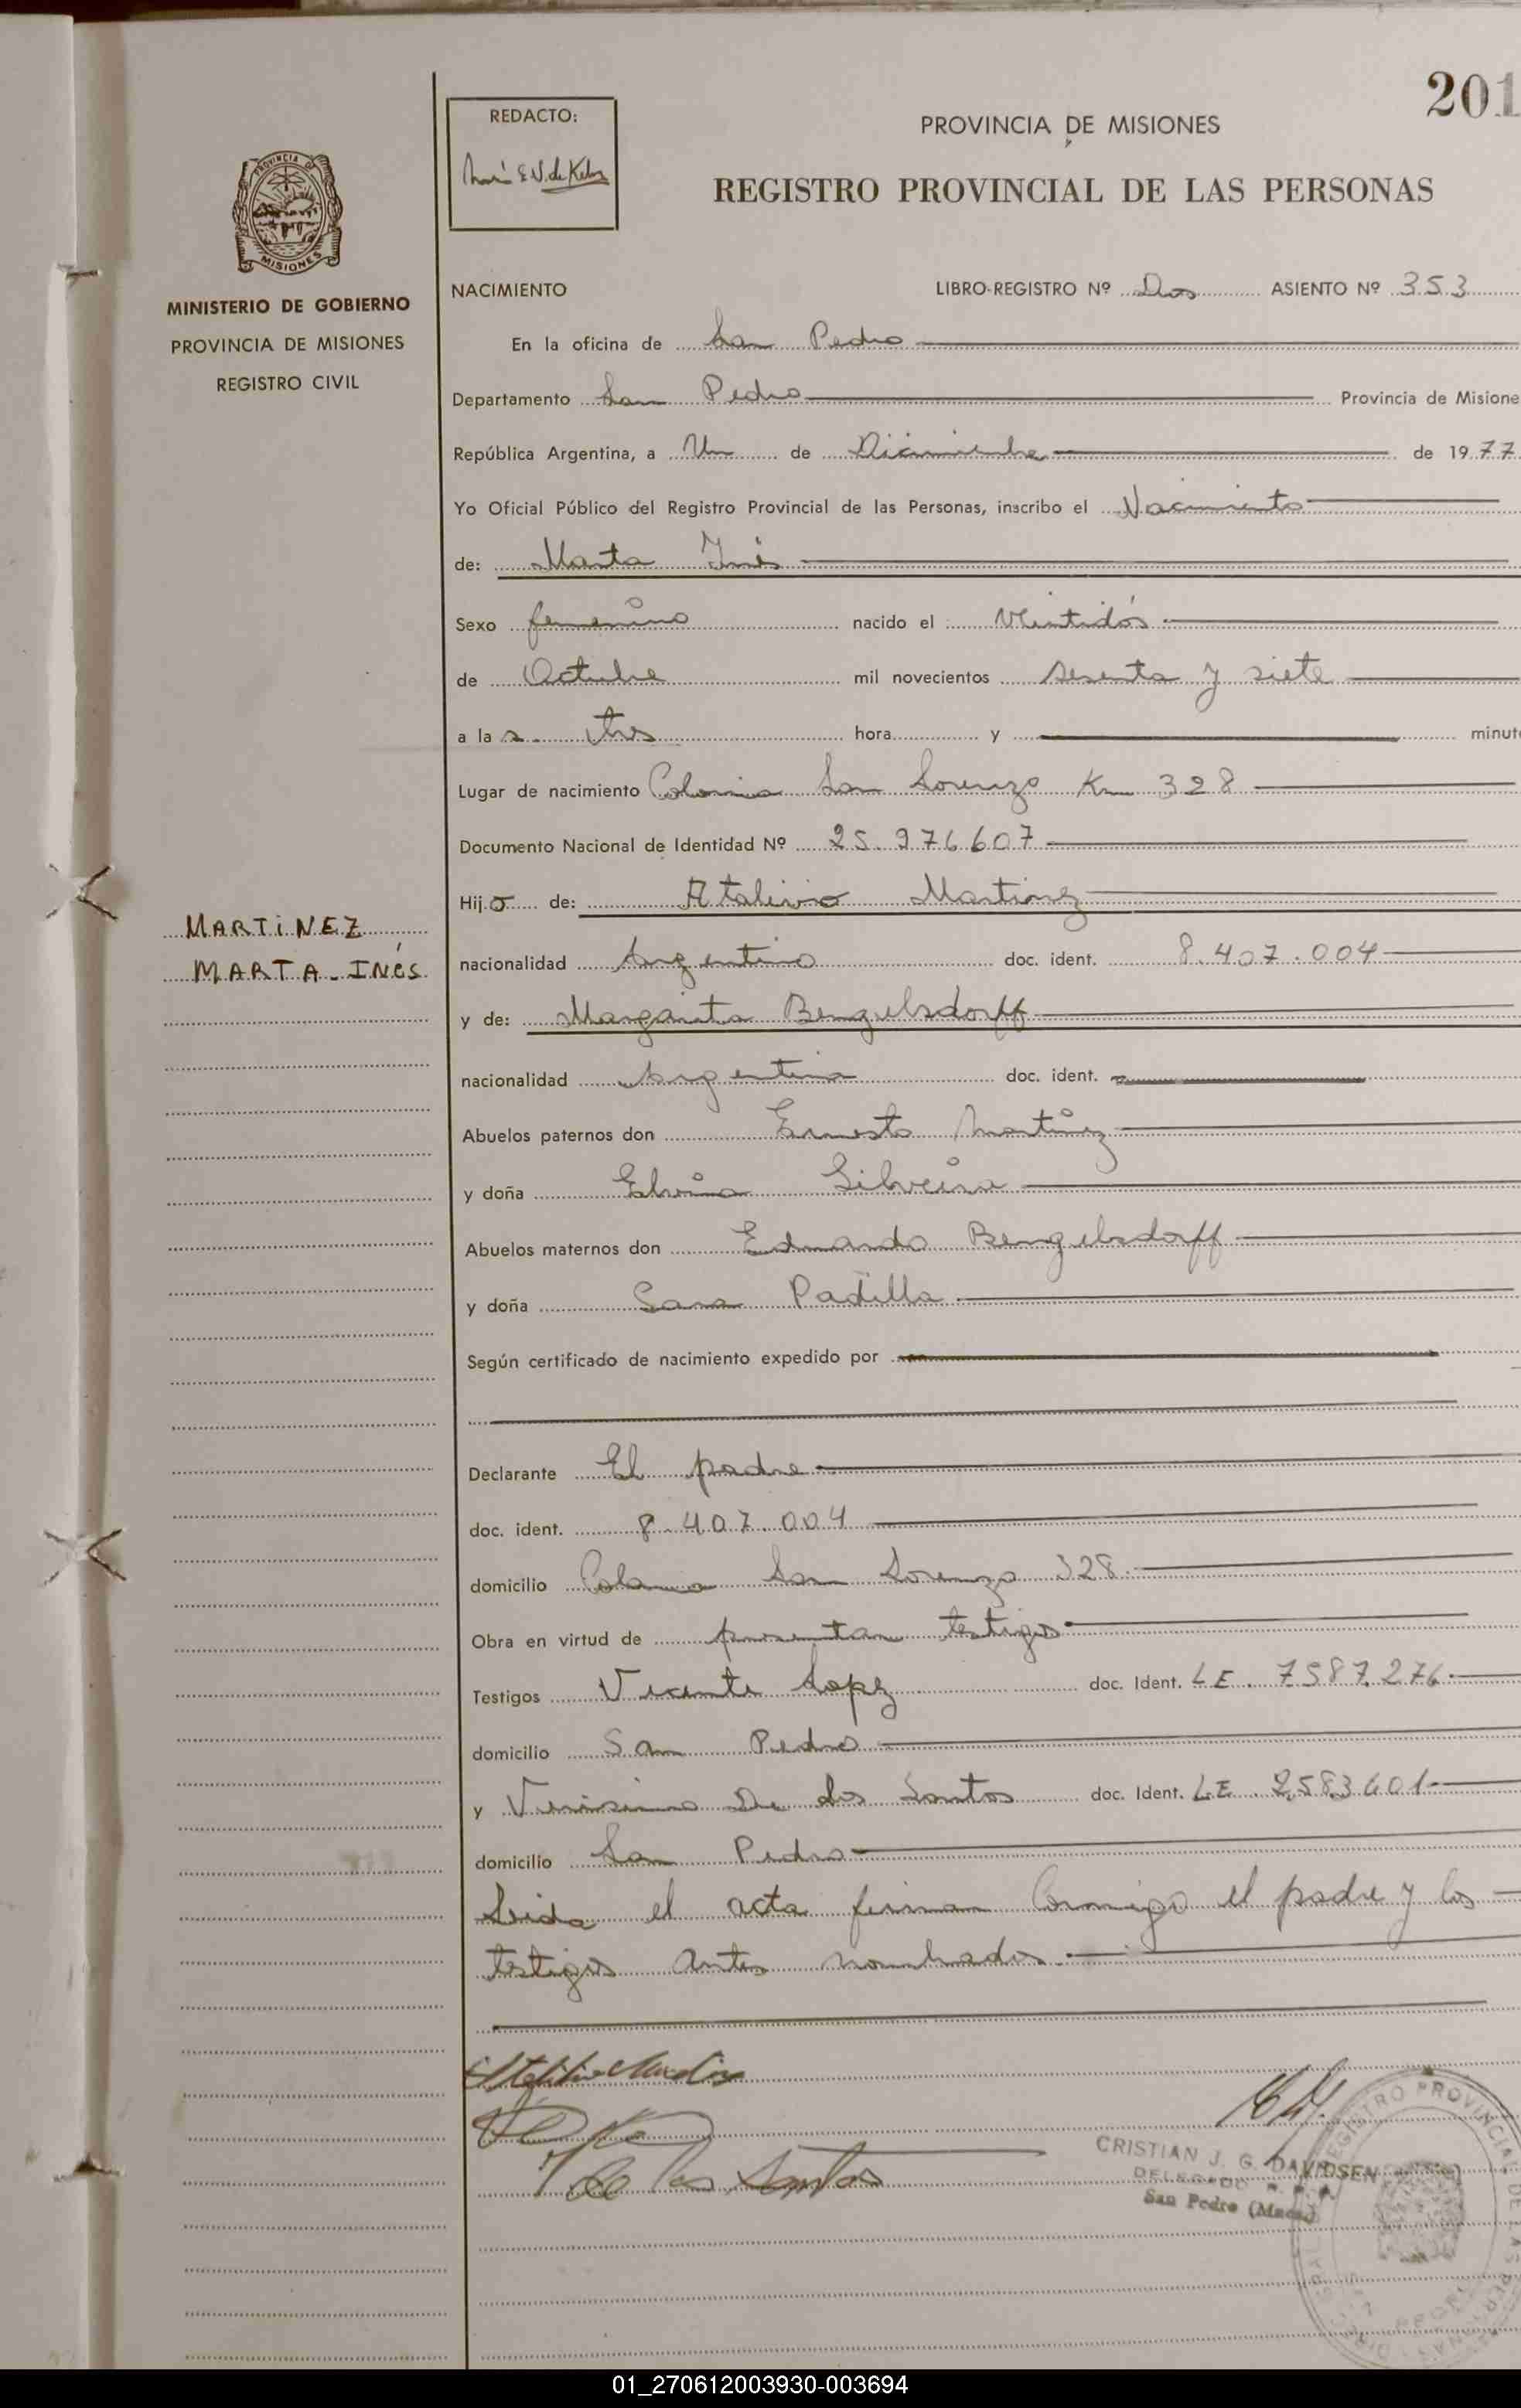 201
REDACTO:
PROVINCIA DE MISIONES
REGISTRO PROVINCIAL DE LAS PERSONAS
PROVINCIA DE
MISIONES
MINISTERIO DE GOBIERNO
PROVINCIA DE MISIONES
REGISTRO CIVIL
NACIMIENTO LIBRO-REGISTRO Nº Dos ASIENTO Nº 353
En la oficina de San Pedro
Departamento San Pedro Provincia de Misione
República Argentina, a Un de Diciembre de 1977
Yo Oficial Público del Registro Provincial de las Personas, inscribo el Nacimiento
de: Marta Inés
Sexo femenino nacido el Veintidós
de Octubre mil novecientos sesenta y siete
a la s tres hora y minut
Lugar de nacimiento Colonia San Lorenzo Km 328
Documento Nacional de Identidad Nº 25.976607
Hij a de: Atalivio Martinez
MARTINEZ
MARTA-INÉS
nacionalidad Argentino doc. ident. 8.407.004
y de: Margarita Bengelsdorff
nacionalidad Argentina doc. ident.
Abuelos paternos don Ernesto Martinez
y doña Elvira Silveira
Abuelos maternos don Eduardo Bengelsdorff
y doña Sara Padilla
Según certificado de nacimiento expedido por
Declarante El padre
doc. ident. 8.407.004
domicilio Colonia San Lorenzo 328
Obra en virtud de presentar testigos
Testigos Vicente Lopez doc. Ident. LE. 7587.276
domicilio San Pedro
y Verisimo De los Santos doc. Ident. LE. 2583601
domicilio San Pedro
Leida el acta firman Conmigo el padre y los
testigos antes nombrados.
de los Santos
CRISTIAN J. G. DAVIDSEN
DELEGADO
San Pedro (Mnes.)
REGISTRO PROVINCIAL DE LAS PERSONAS
01_270612003930-003694